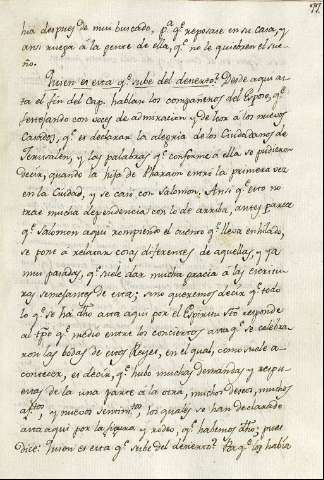 77
ha despues de muy buscado, pª qe reposase en su casa, y
ansi ruega à la gente de ella, qe no le quiebren el sue-
ño.
Quien es esta qe sube del desierto? Desde aqui as-
ta el fin del Cap. hablan los compañeros del Esposo, qe
festejando con voces de admiracion y de loor à los nuevos
Casados, qe es declarar la alegria de los Ciudadanos de
Jerusalén, y las palabras qe conforme à ella se pudieron
decir, quando la hija de Pharaon entró la primera vez
en la Ciudad, y se casó con Salomon. Ansi qe esto no
trae mucha dependencia con lo de arriba, antes parece
qe Salomon aqui rompiendo el cuento qe lleva enhilado,
se pone à relatar cosas diferentes de aquellas, y ya
muy pasadas, qe suele dar mucha gracia à las escritu-
ras semejantes de esta; sino queremos decir qe todo
lo qe se ha dho asta aqui por el Espiritu Sto responde
al tpo qe medio entre los conciertos asta qe se celebra-
ron las bodas de estos Reyes, en el qual, como suele a-
contecer, es decir, qe hubo muchas demandas y respu-
estas de la una parte à la otra, muchos deseos, muchos
afctos, y nuevos sentimtos, los quales se han declarado
asta aqui por la figura y rodeo, qe habemos dho; pues
dice: Quien es esta qe sube del desierto? Por qe los habia